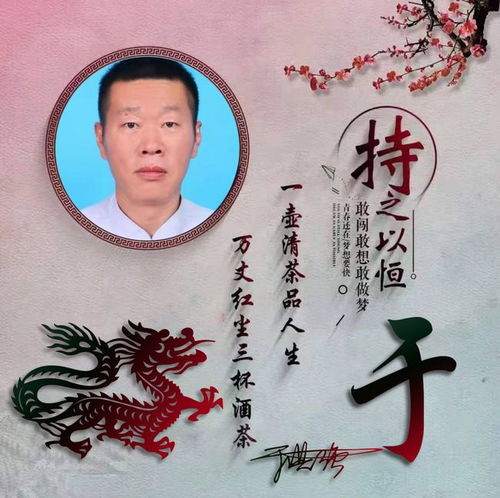 持之以恒
敢闯敢想敢做梦
青春还在 梦想要快
一壶清茶品人生
万丈红尘三杯酒茶
于